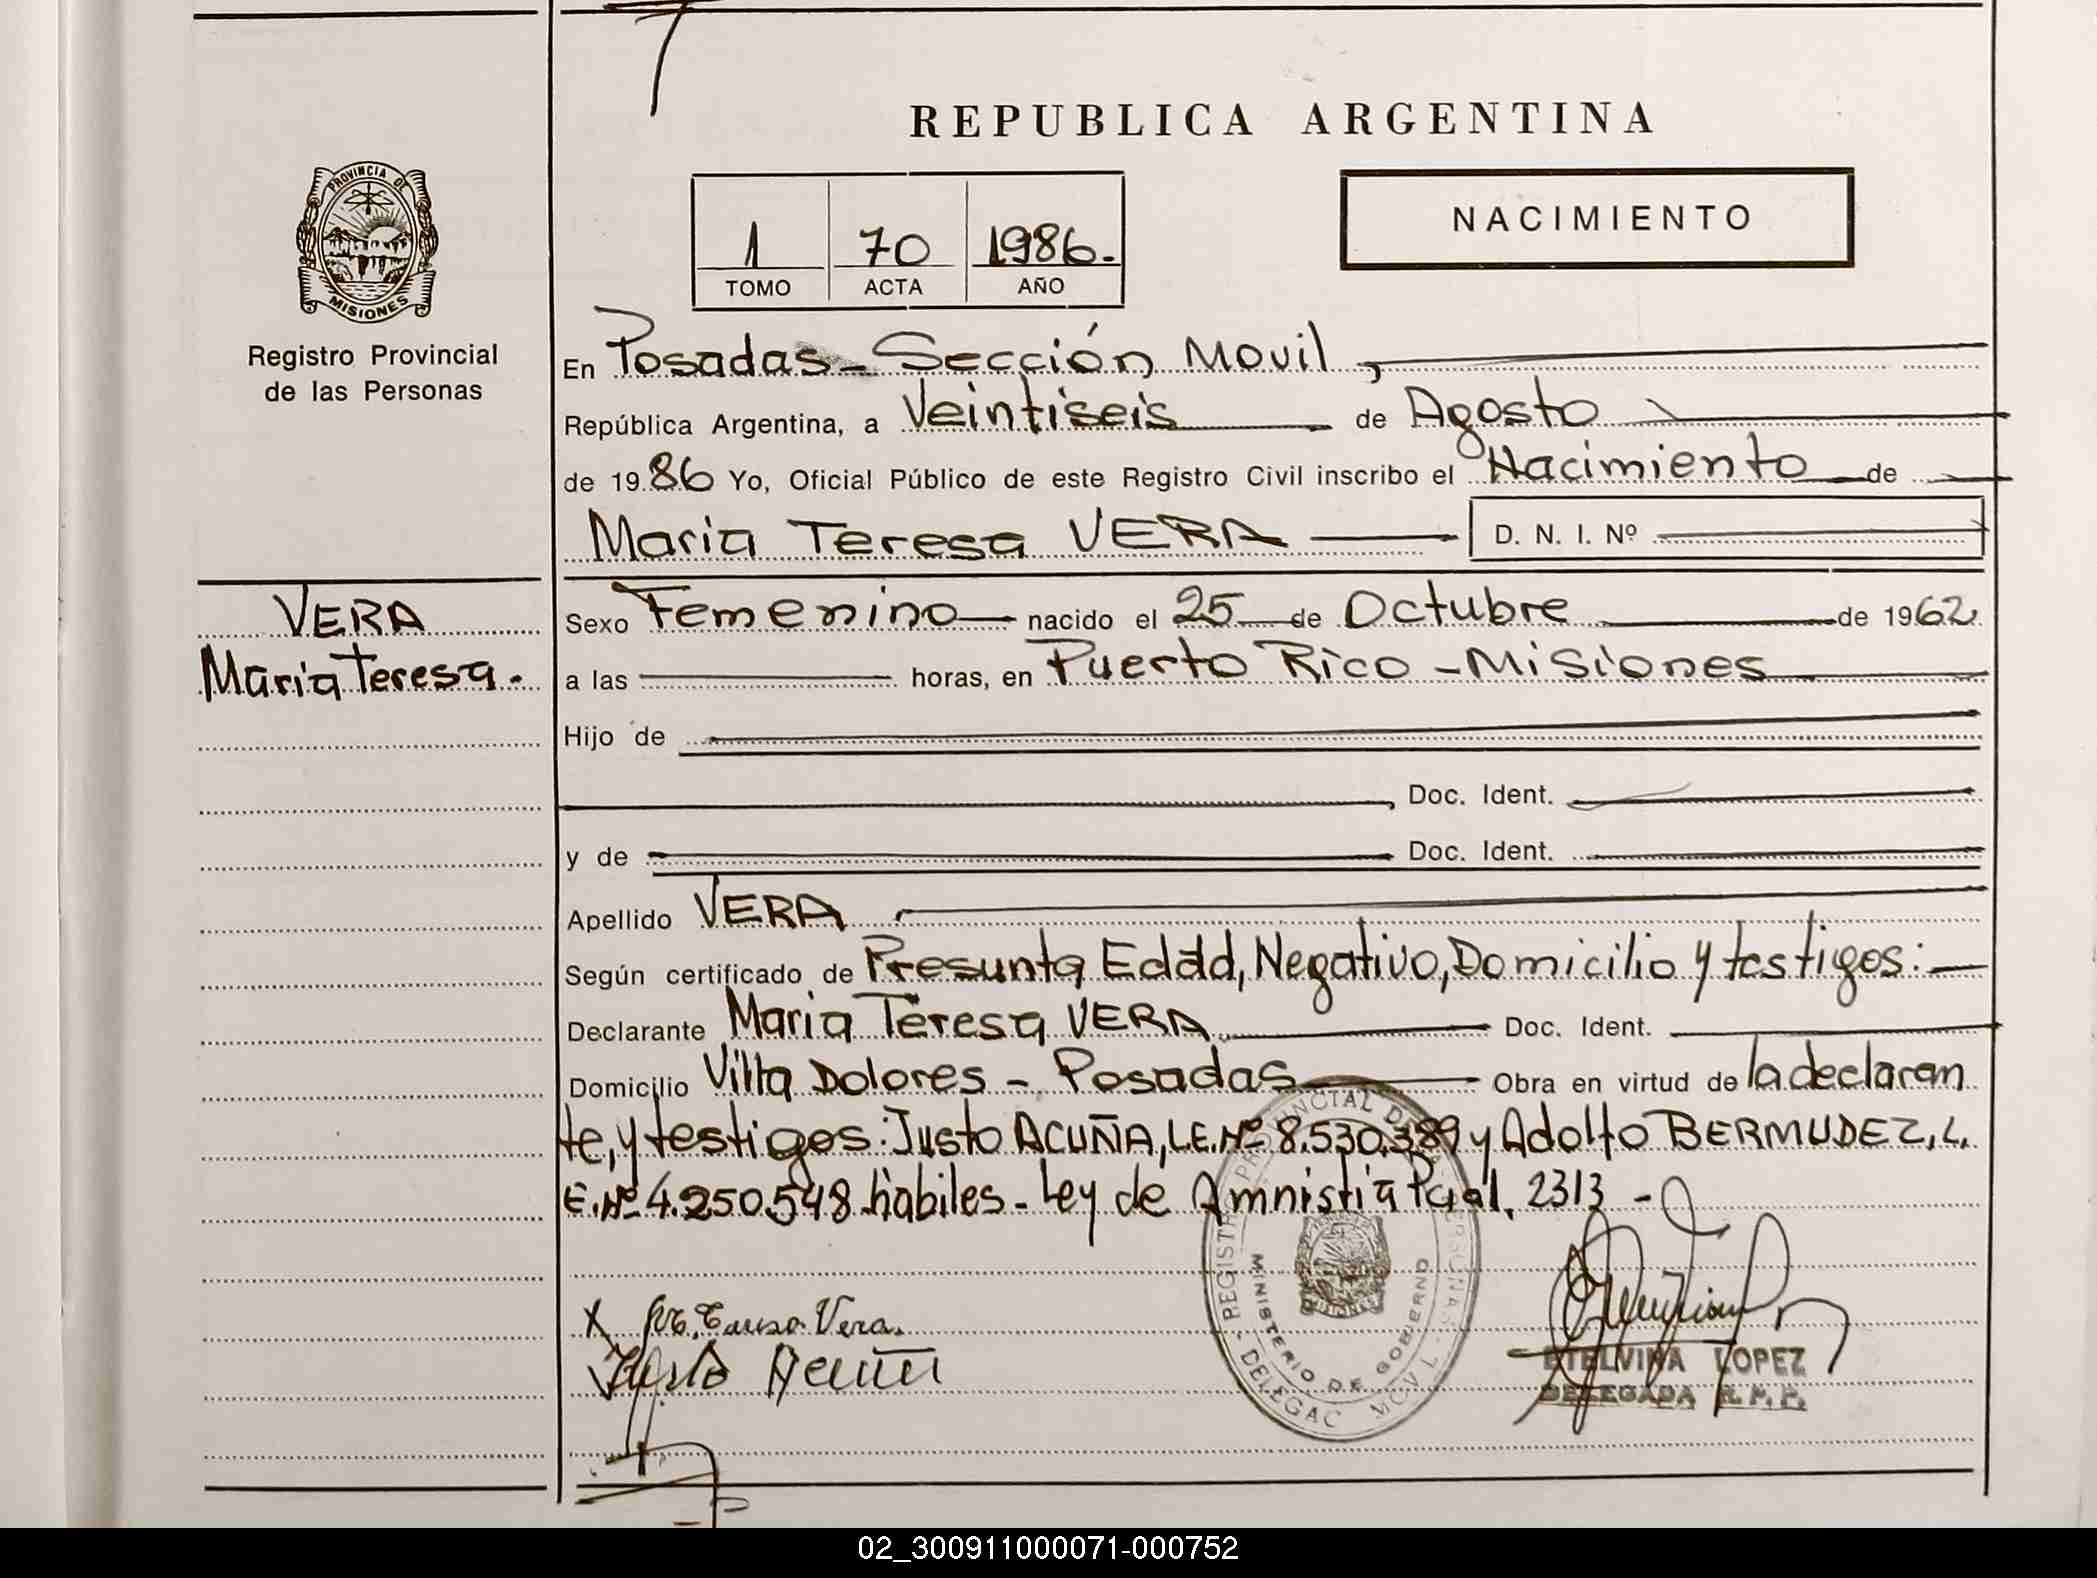 REPUBLICA ARGENTINA
PROVINCIA DE
MISIONES
Registro Provincial
de las Personas
NACIMIENTO
1 70 1986.
TOMO ACTA AÑO
En Posadas - Sección Movil,
República Argentina, a Veintiseis de Agosto
de 1986 Yo, Oficial Público de este Registro Civil inscribo el Nacimiento de
Maria Teresa VERA D. N. I. Nº
VERA
Maria Teresa.
Sexo Femenino nacido el 25 de Octubre de 1962
a las horas, en Puerto Rico - Misiones
Hijo de
Doc. Ident.
y de Doc. Ident.
Apellido VERA
Según certificado de Presunta Edad, Negativo, Domicilio y testigos:
Declarante Maria Teresa VERA Doc. Ident.
Domicilio Villa Dolores - Posadas Obra en virtud de la declaran
te, y testigos: Justo ACUÑA, L.E. Nº 8.530.389 y Adolfo BERMUDEZ, L.
E. Nº 4.250.548 habiles - Ley de Amnistia Pcial. 2313 -
MINISTERIO DE GOBIERNO
X Vera.
Justo Acuña
ETELVINA LOPEZ
DELEGADA R.P.P.
02_300911000071-000752